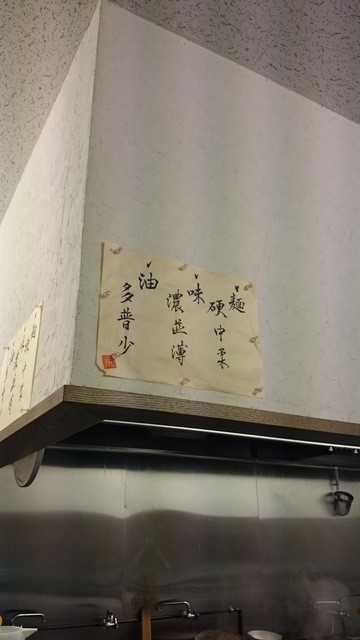 麺
硬中柔
味
濃並薄
油
多普少